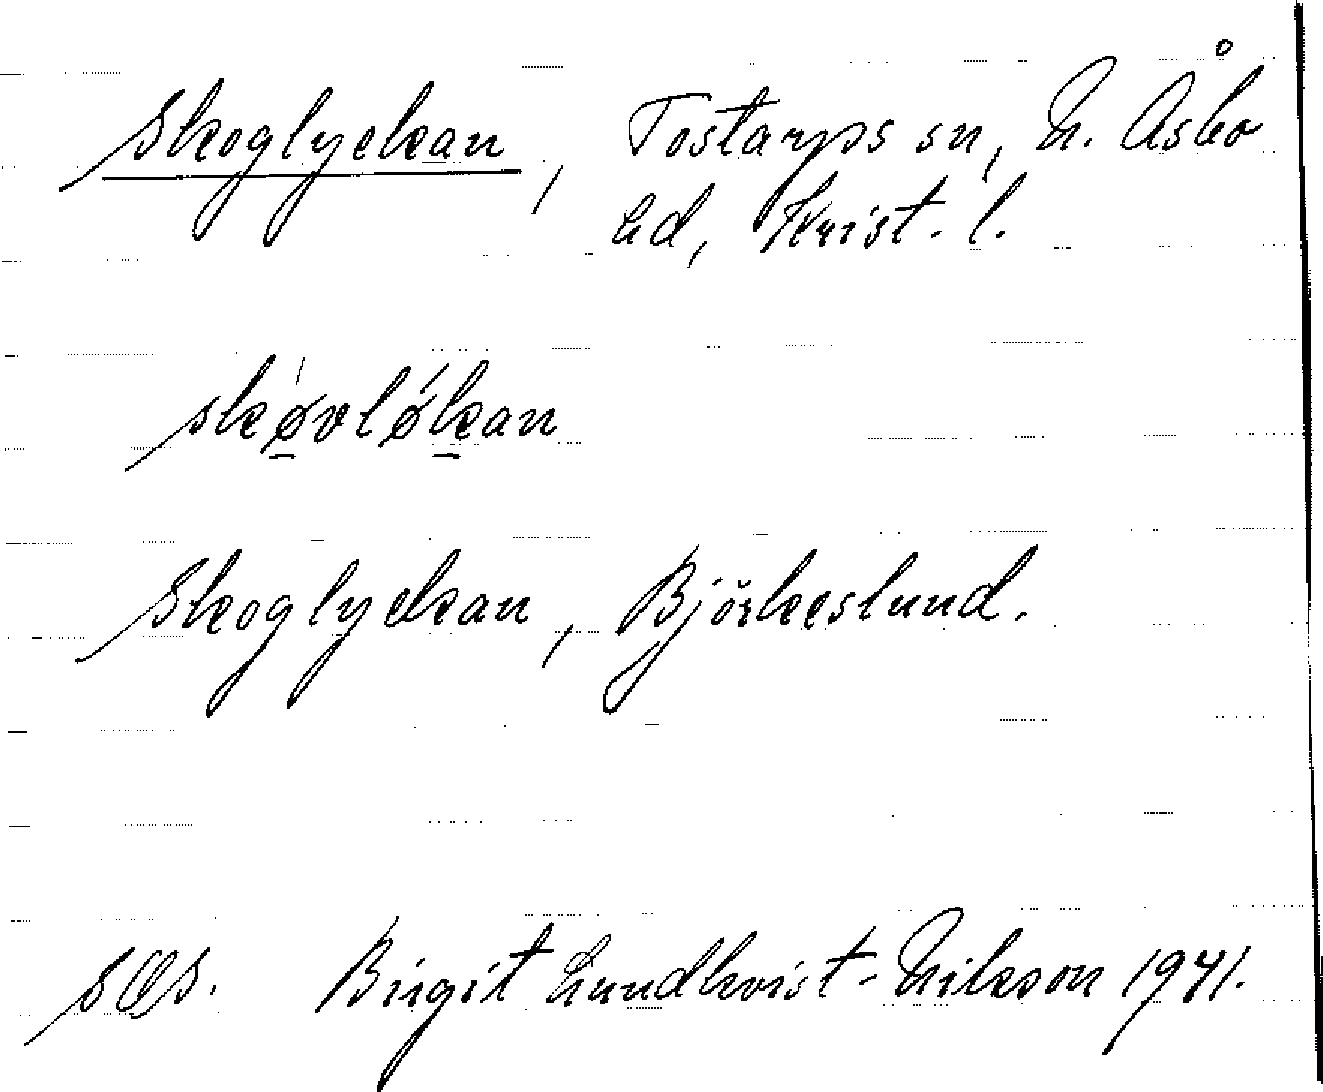 Skoglyckan, Tostarps sn, N. Åsbo
hd, Krist. l.
skǿ̠vlǿk̠an
Skoglyckan, Björkeslund.
Birgit Lundkvist-Nilsson 1941.